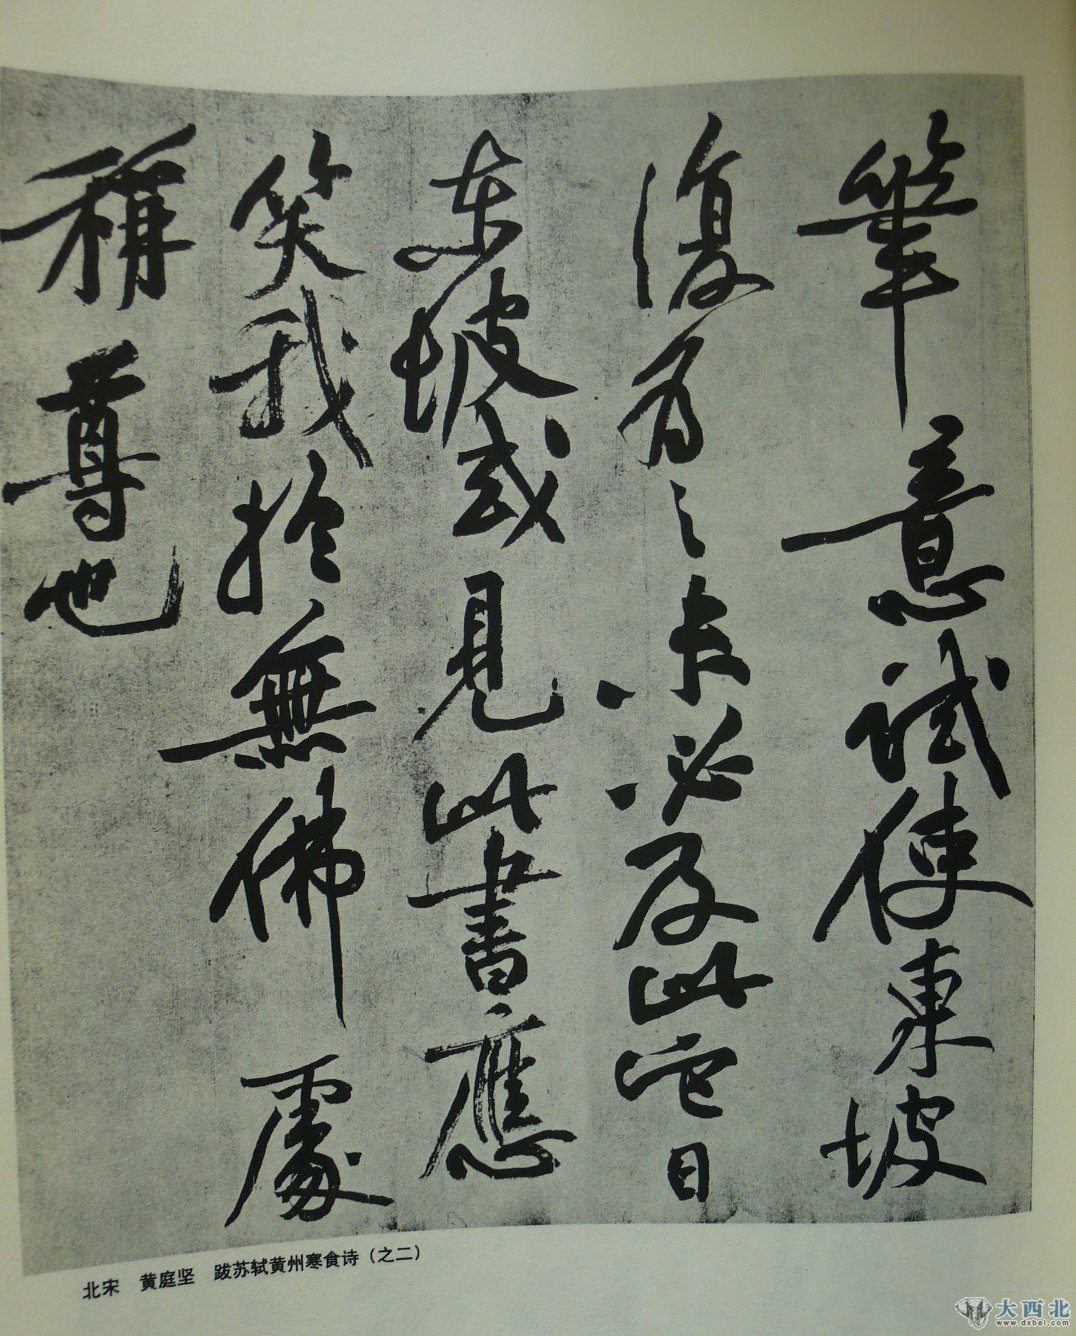 筆意試使東坡
復為之未必及此它日
東坡或見此書應
笑我於無佛處
稱尊也
北宋 黄庭坚 跋苏轼黄州寒食诗（之二）
大西北
www.dxbei.com